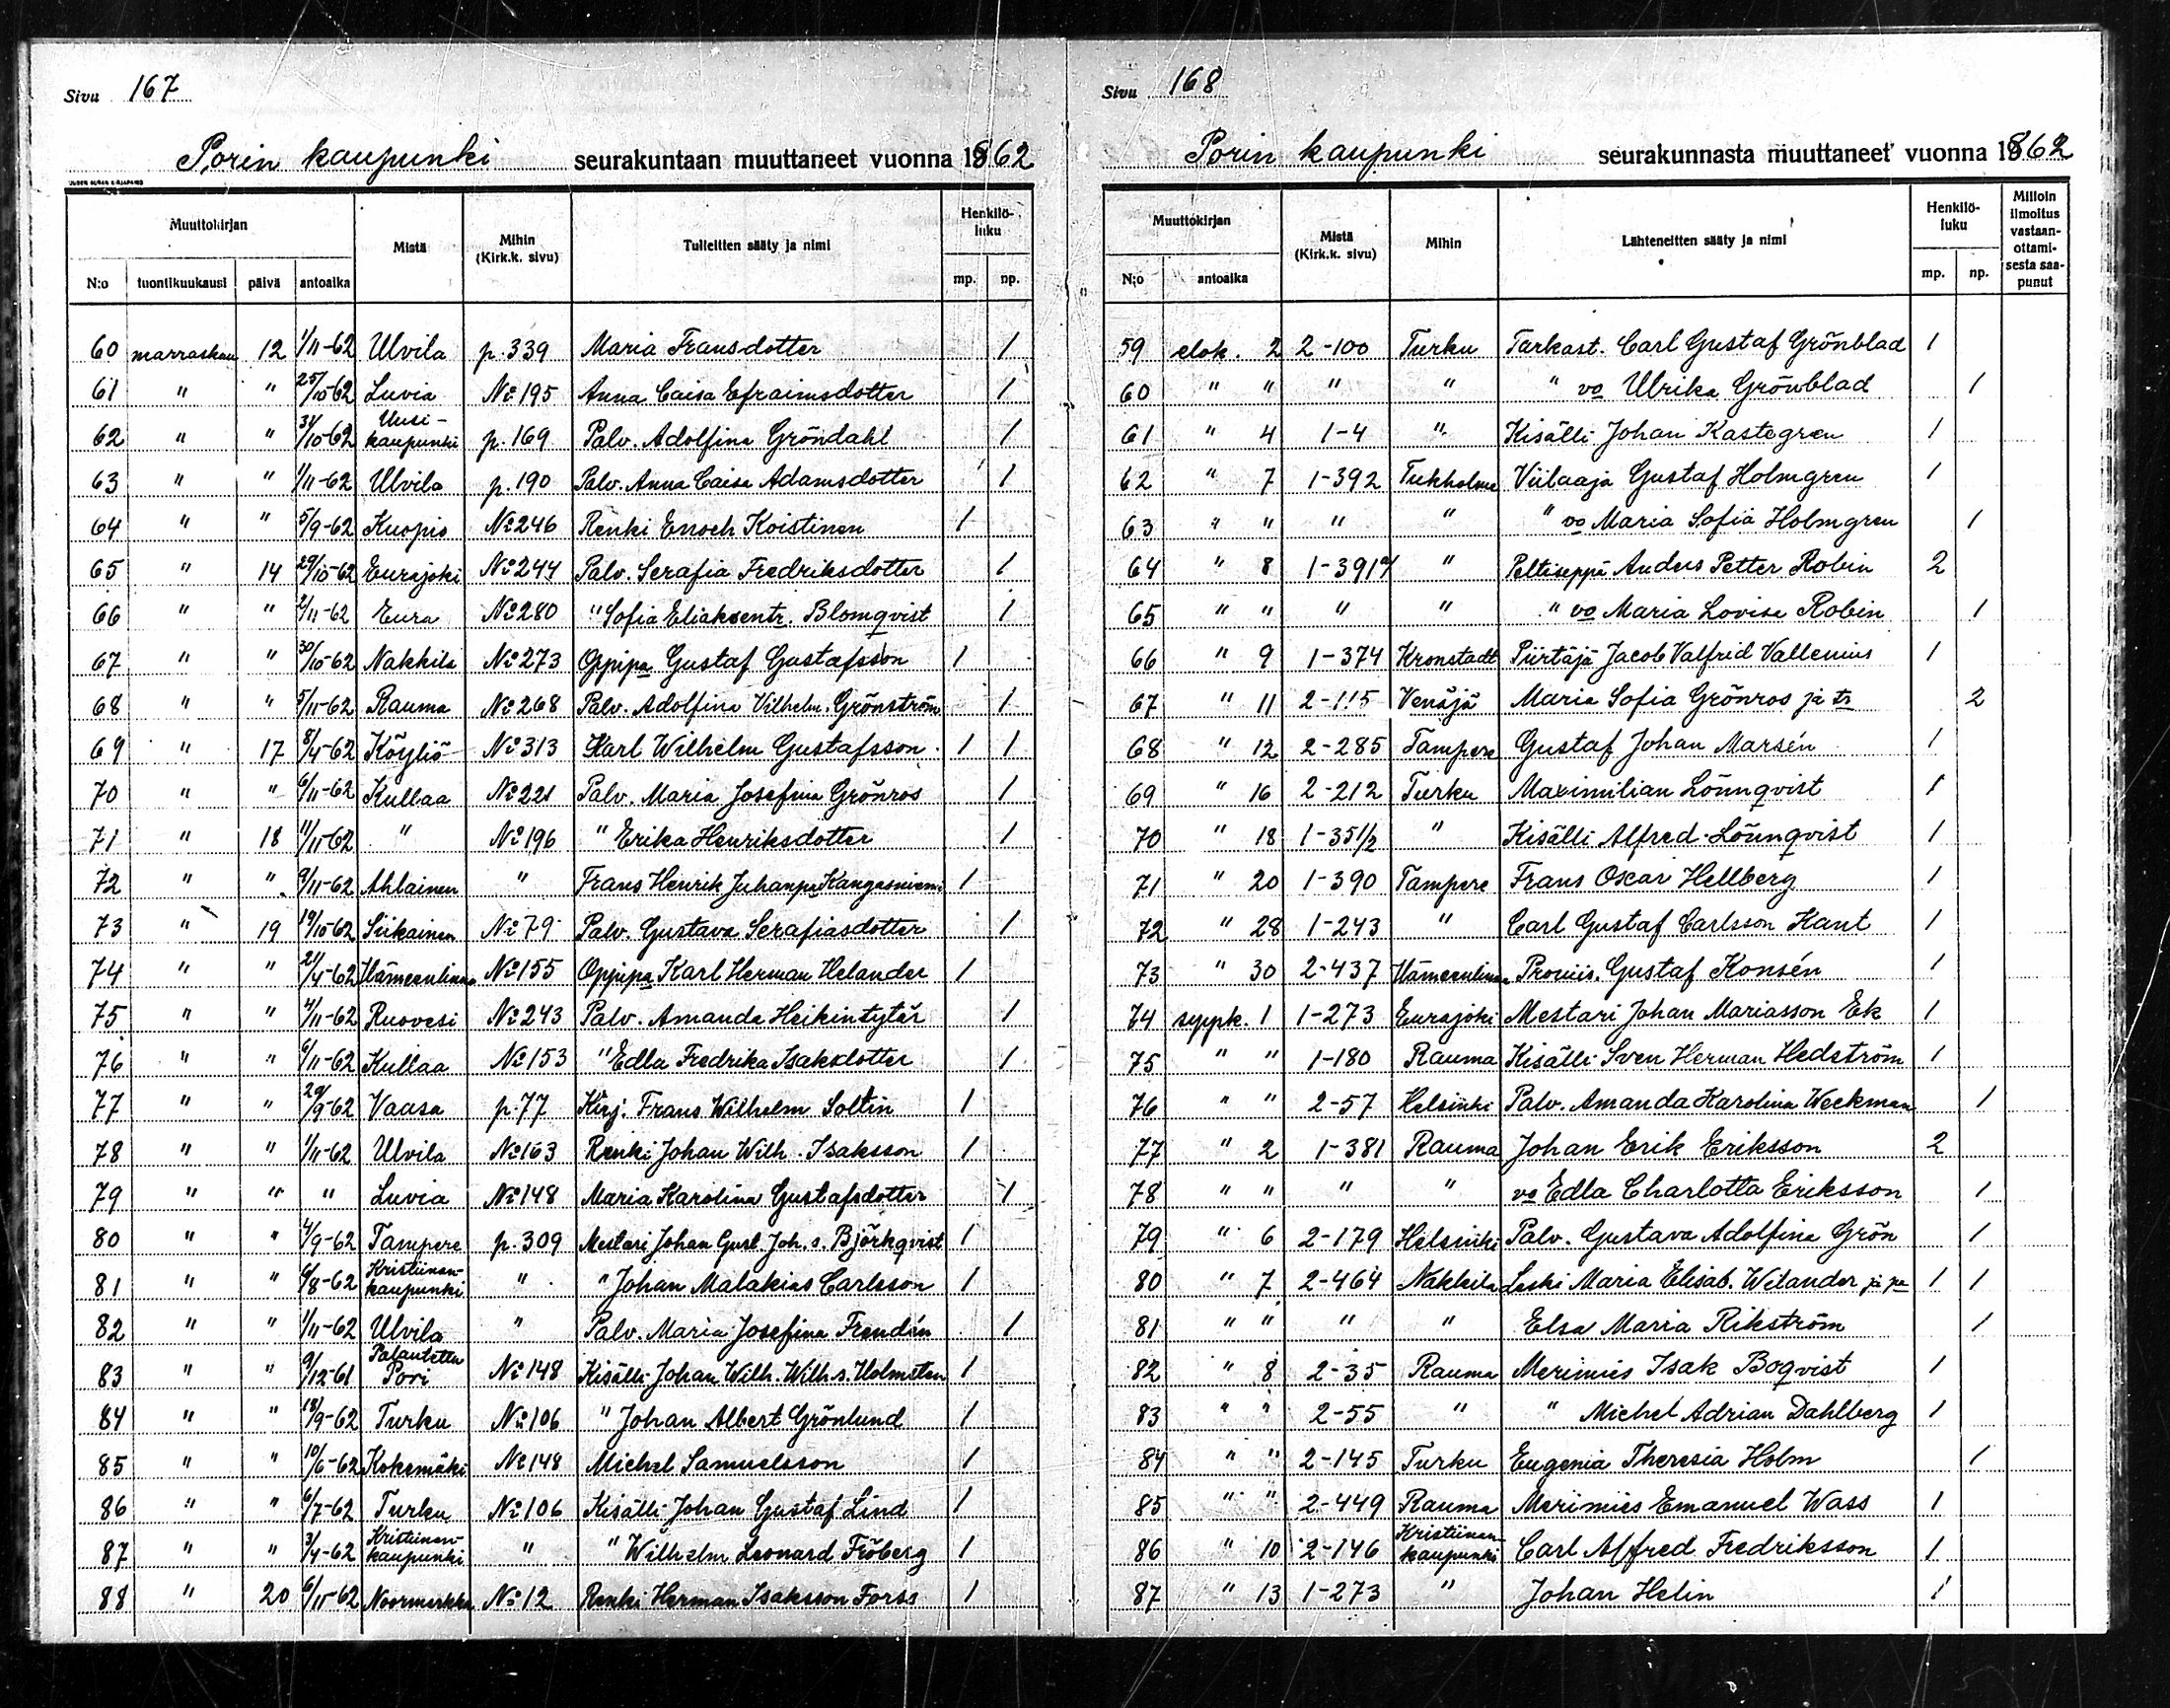 Sivu 167
Porin kaupunki seurakuntaan muuttaneet vuonna 1862
Muuttokirjan Mistä Mihin (Kirk.k. sivu) Tulleitten sääty ja nimi Henkilöluku
N:o tuontikuukausi päivä antoaika mp. np.
60 marraskuu 12 1/11-62 Ulvila p. 339 Maria Fransdotter 1
61 " " 25/10-62 Luvia No 195 Anna Caisa Efraimsdotter 1
62 " " 31/10-62 Uusi-kaupunki p. 169 Palv. Adolfina Gröndahl 1
63 " " 1/11-62 Ulvila p. 190 Palv. Anna Caisa Adamsdotter 1
64 " " 5/9-62 Kuopio No 246 Renki Enoch Koistinen 1
65 " 14 29/10-62 Eurajoki No 244 Palv. Serafia Fredriksdotter 1
66 " " 2/11-62 Eura No 280 " Sofia Eliaksentr. Blomqvist 1
67 " " 30/10-62 Nakkila No 273 Oppipa Gustaf Gustafsson 1
68 " " 5/11-62 Rauma No 268 Palv. Adolfina Vilhelm. Grönström 1
69 " 17 8/4-62 Köyliö No 313 Karl Wilhelm Gustafsson 1 1
70 " " 6/11-62 Kullaa No 221 Palv. Maria Josefina Grönros 1
71 " 18 11/11-62 " No 196 " Erika Henriksdotter 1
72 " " 9/11-62 Ahlainen " Frans Henrik Juhanpa Kangasniemi 1
73 " 19 19/10-62 Siikainen No 79 Palv. Gustava Serafiasdotter 1
74 " " 21/4-62 Hämeenlinna No 155 Oppipa Karl Herman Helander 1
75 " " 4/11-62 Ruovesi No 243 Palv. Amanda Heikintytär 1
76 " " 6/11-62 Kullaa No 153 " Edla Fredrika Isaksdotter 1
77 " " 29/9-62 Vaasa p. 77 Kirj. Frans Wilhelm Soltin 1
78 " " 1/11-62 Ulvila No 163 Renki Johan Wilh. Isaksson 1
79 " " " Luvia No 148 Maria Karolina Gustafsdotter 1
80 " " 4/9-62 Tampere p. 309 Mestari Johan Gust. Joh. s. Björkqvist 1
81 " " 6/8-62 Kristiinan-kaupunki " " Johan Malakias Carlsson 1
82 " " 1/11-62 Ulvila " Palv. Maria Josefina Frendén 1
83 " " 9/12-61 Palautettu Pori No 148 Kisälli Johan Wilh. Wilh. s. Holmsten 1
84 " " 18/9-62 Turku No 106 " Johan Albert Grönlund 1
85 " " 10/6-62 Kokemäki No 148 Michel Samuelsson 1
86 " " 6/7-62 Turku No 106 Kisälli Johan Gustaf Lind 1
87 " " 3/4-62 Kristiinan-kaupunki " " Wilhelm Leonard Fröberg 1
88 " 20 6/11-62 Noormarkku No 12 Renki Herman Isaksson Forss 1
Sivu 168
Porin kaupunki seurakunnasta muuttaneet vuonna 1862
Muuttokirjan Mistä (Kirk.k. sivu) Mihin Lähteneitten sääty ja nimi Henkilöluku Milloin ilmoitus vastaan-ottami-sesta saa-punut
N:o antoaika mp. np.
59 elok. 2 2-100 Turku Tarkast. Carl Gustaf Grönblad 1
60 " " " " " vo Ulrika Grönblad 1
61 " 4 1-4 " Kisälli Johan Kastegren 1
62 " 7 1-392 Tukholma Viilaaja Gustaf Holmgren 1
63 " " " " " vo Maria Sofia Holmgren 1
64 " 8 1-391 " Peltiseppä Anders Petter Robin 2
65 " " " " " vo Maria Lovisa Robin 1
66 " 9 1-374 Kronstadt Piirtäjä Jacob Valfrid Vallenius 1
67 " 11 2-115 Venäjä Maria Sofia Grönros ja tr 2
68 " 12 2-285 Tampere Gustaf Johan Marsén 1
69 " 16 2-212 Turku Maximilian Lönnqvist 1
70 " 18 1-351/2 " Kisälli Alfred Lönnqvist 1
71 " 20 1-390 Tampere Frans Oscar Hellberg 1
72 " 28 1-243 " Carl Gustaf Carlsson Kant 1
73 " 30 2-437 Hämeenlinna Proviis. Gustaf Konsén 1
74 syysk. 1 1-273 Eurajoki Mestari Johan Mariasson Ek 1
75 " " 1-180 Rauma Kisälli Sven Herman Hedström 1
76 " " 2-57 Helsinki Palv. Amanda Karolina Weckman 1
77 " 2 1-381 Rauma Johan Erik Eriksson 2
78 " " " " vo Edla Charlotta Eriksson 1
79 " 6 2-179 Helsinki Palv. Gustava Adolfina Grön 1
80 " 7 2-464 Nakkila Leski Maria Elisab. Welander ja pa 1 1
81 " " " " Elsa Maria Rikström 1
82 " 8 2-35 Rauma Merimies Isak Boqvist 1
83 " " 2-55 " " Michel Adrian Dahlberg 1
84 " " 2-145 Turku Eugenia Theresia Holm 1
85 " " 2-449 Rauma Merimies Emanuel Wass 1
86 " 10 2-146 Kristiinan-kaupunki Carl Alfred Fredriksson 1
87 " 13 1-273 " Johan Helin 1